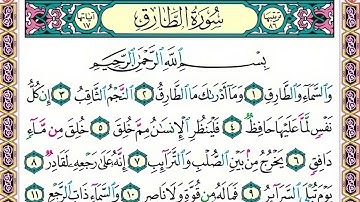 ترتيبها ٨٦ سُورَةُ الطَّارِقِ آياتها ١٧
بِسْمِ اللَّهِ الرَّحْمَٰنِ الرَّحِيمِ
وَالسَّمَاءِ وَالطَّارِقِ ١ وَمَا أَدْرَاكَ مَا الطَّارِقُ ٢ النَّجْمُ الثَّاقِبُ ٣ إِن كُلُّ
نَفْسٍ لَّمَّا عَلَيْهَا حَافِظٌ ٤ فَلْيَنظُرِ الْإِنسَٰنُ مِمَّ خُلِقَ ٥ خُلِقَ مِن مَّاءٍ
دَافِقٍ ٦ يَخْرُجُ مِن بَيْنِ الصُّلْبِ وَالتَّرَائِبِ ٧ إِنَّهُ عَلَىٰ رَجْعِهِ لَقَادِرٌ ٨
يَوْمَ تُبْلَى السَّرَائِرُ ٩ فَمَا لَهُ مِن قُوَّةٍ وَلَا نَاصِرٍ ١٠ وَالسَّمَاءِ ذَاتِ الرَّجْعِ ١١